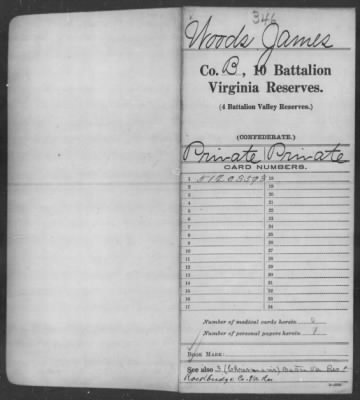 346
Woods James
Co. B, 10 Battalion
Virginia Reserves.
(4 Battalion Valley Reserves.)
(CONFEDERATE.)
Private Private
CARD NUMBERS.
1 51203593 18
2 19
3 20
4 21
5 22
6 23
7 24
8 25
9 26
10 27
11 28
12 29
13 30
14 31
15 32
16 33
17 34
Number of medical cards herein 0
Number of personal papers herein 1
BOOK MARK:
See also 3 (Chrisman's) Batt'n Va. Res &
Rockbridge Co. Va Res